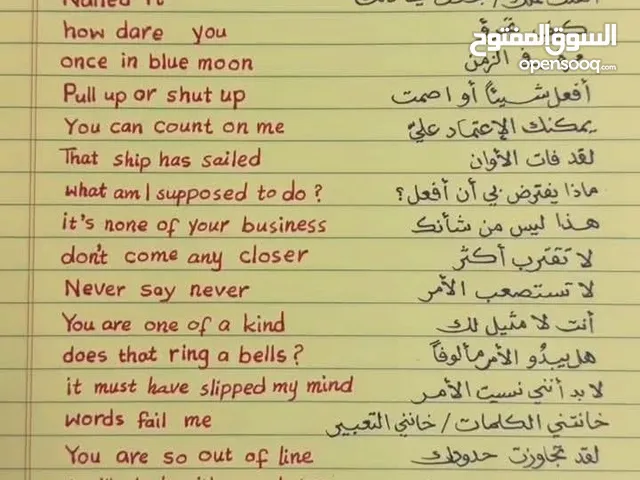 Nailed it
السوق المفتوح
opensooq.com
how dare you
once in blue moon في الزمن
Pull up or shut up أفعل شيئاً أو اصمت
You can count on me يمكنك الإعتماد عليّ
That ship has sailed لقد فات الأوان
what am I supposed to do? ماذا يفترض بي أن أفعل؟
it's none of your business هذا ليس من شأنك
don't come any closer لا تقترب أكثر
Never say never لا تستصعب الأمر
You are one of a kind أنت لا مثيل لك
does that ring a bells? هل يبدو الأمر مألوفاً
it must have slipped my mind لا بد أنني نسيت الأمر
words fail me خانتني الكلمات / خانني التعبير
You are so out of line لقد تجاوزت حدودك